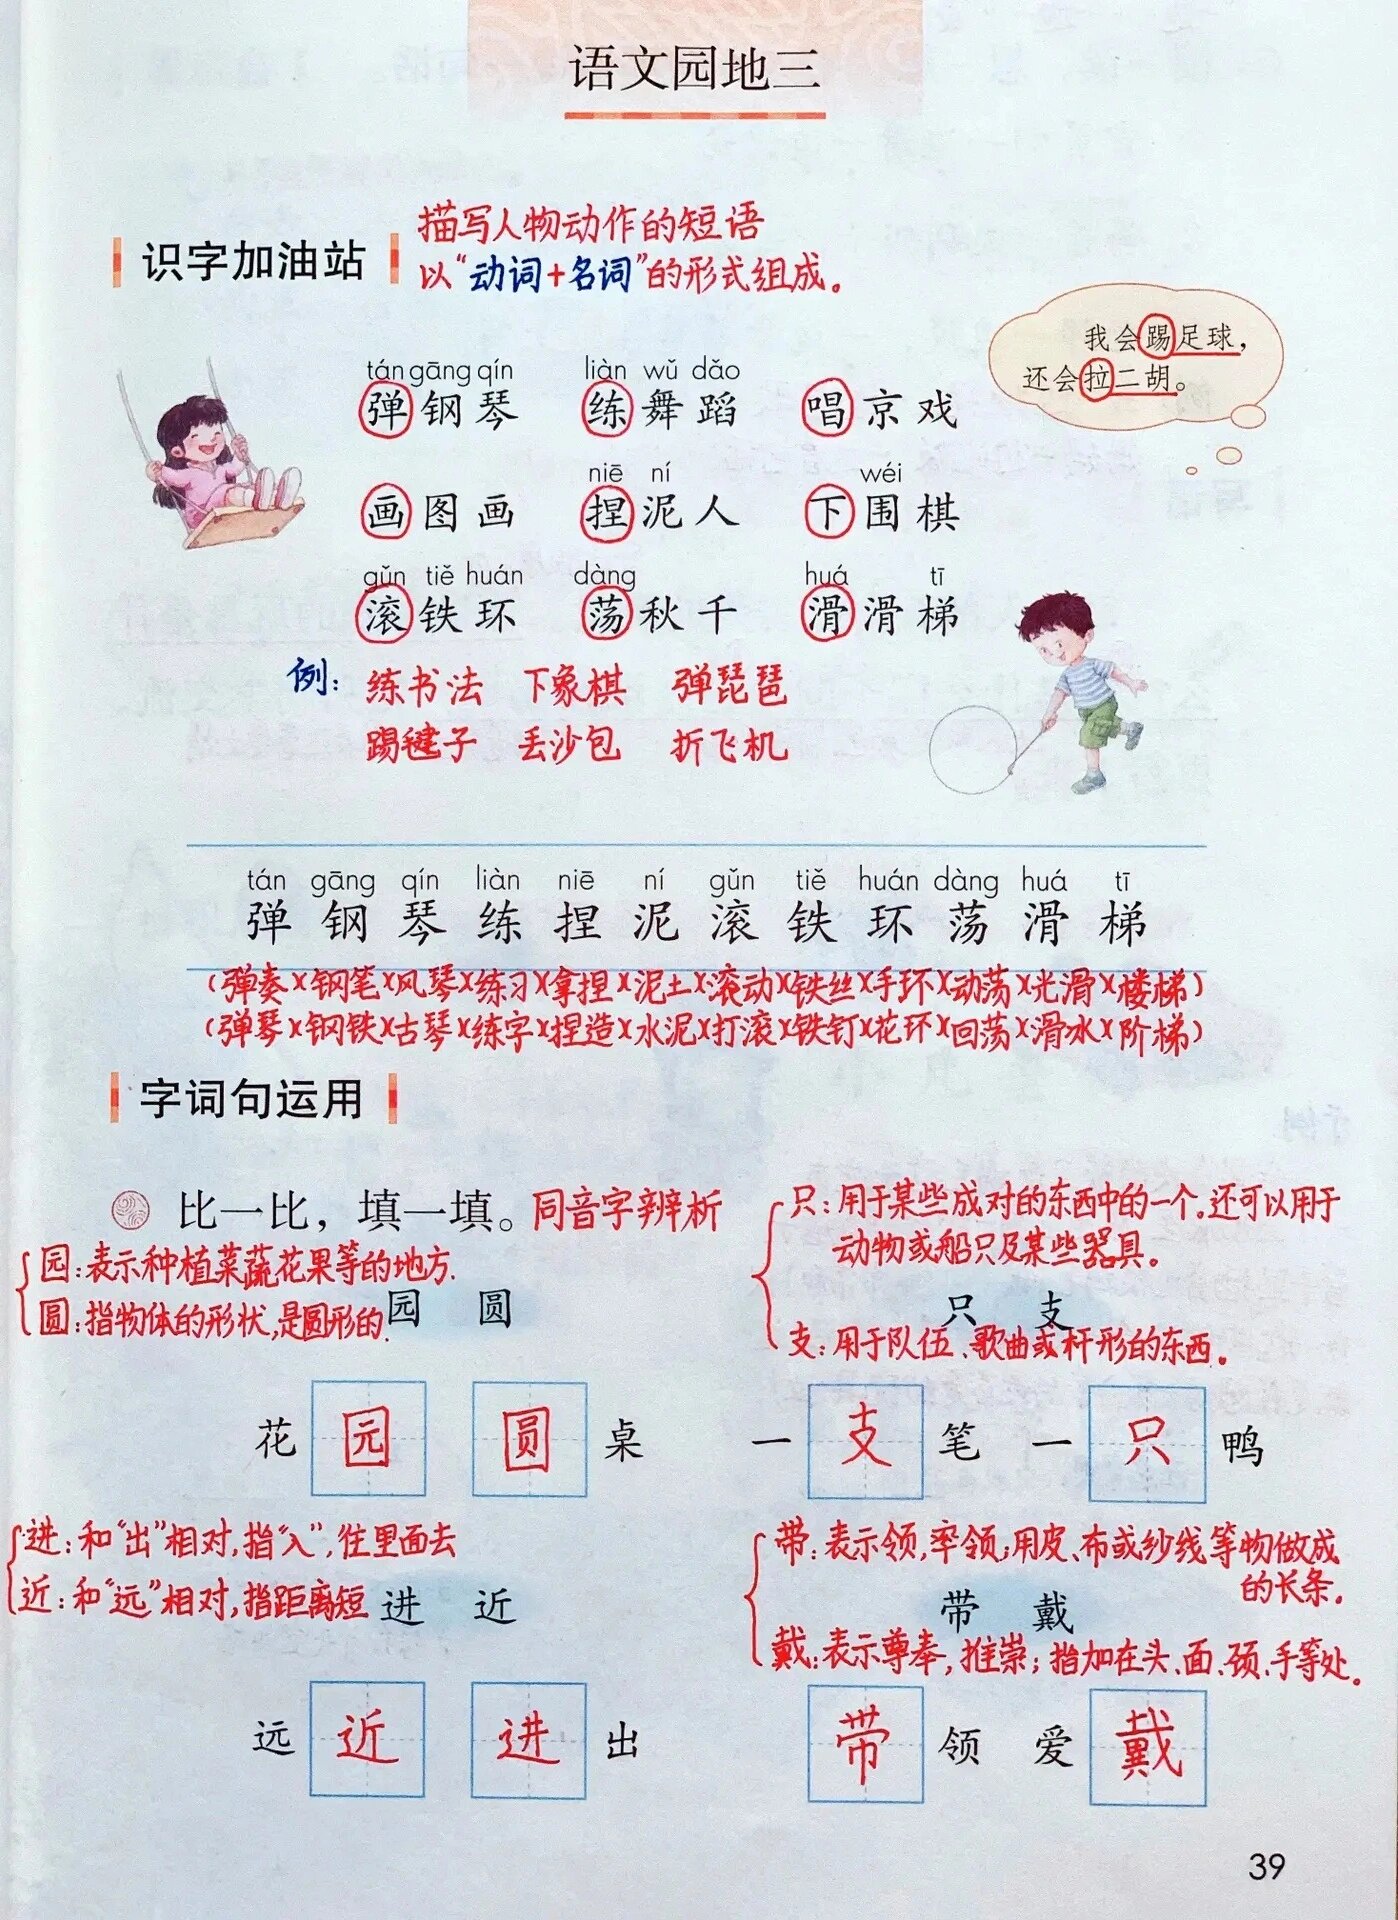 语文园地三
识字加油站
描写人物动作的短语
以“动词+名词”的形式组成。
我会踢足球，
还会拉二胡。
tán gāng qín liàn wǔ dǎo
弹钢琴 练舞蹈 唱京戏
niē ní wéi
画图画 捏泥人 下围棋
gǔn tiě huán dàng huá tī
滚铁环 荡秋千 滑滑梯
例：练书法 下象棋 弹琵琶
踢毽子 丢沙包 折飞机
tán gāng qín liàn niē ní gǔn tiě huán dàng huá tī
弹 钢 琴 练 捏 泥 滚 铁 环 荡 滑 梯
(弹奏)(钢笔)(风琴)(练习)(拿捏)(泥土)(滚动)(铁丝)(手环)(动荡)(光滑)(楼梯)
(弹琴)(钢铁)(古琴)(练字)(捏造)(水泥)(打滚)(铁钉)(花环)(回荡)(滑冰)(阶梯)
字词句运用
比一比，填一填。同音字辨析
园：表示种植菜蔬花果等的地方.
圆：指物体的形状,是圆形的.
园 圆
只：用于某些成对的东西中的一个。还可以用于
动物或船只及某些器具。
只 支
支：用于队伍、歌曲或杆形的东西。
花园 圆桌 一支笔 一只鸭
进：和“出”相对,指“入”,往里面去
近：和“远”相对,指距离短
进 近
带：表示领,率领;用皮、布或纱线等物做成
的长条。
带 戴
戴：表示尊奉,推崇；指加在头、面、颈、手等处。
远近 进出 带领 爱戴
39